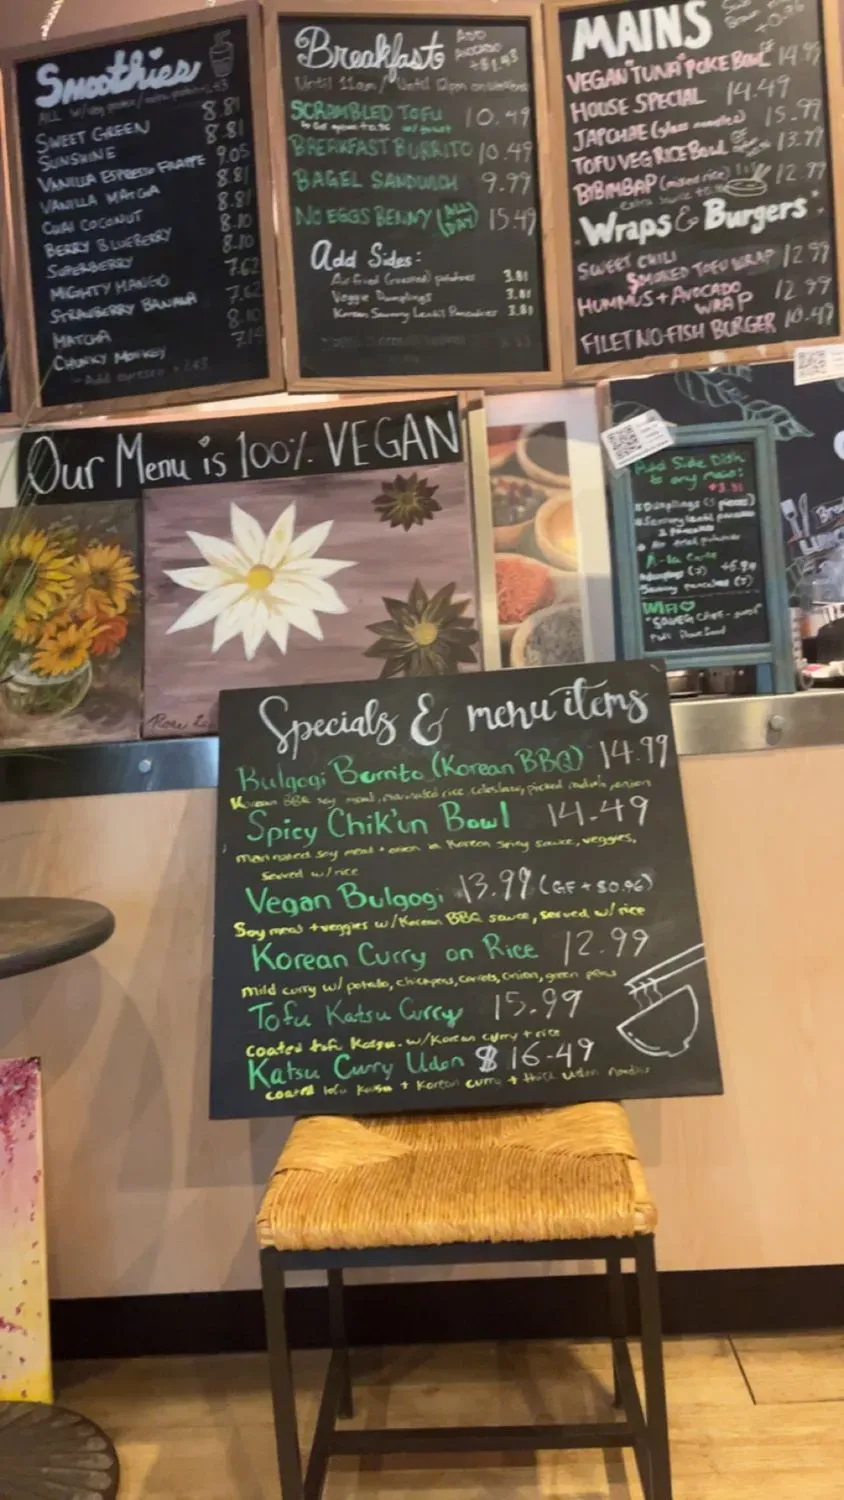 Smoothies
SWEET GREEN 8.81
SUNSHINE 8.81
VANILLA ESPRESSO FRAPPE 9.05
VANILLA MATCHA 8.81
CHAI COCONUT 8.81
BERRY BLUEBERRY 8.10
SUPERBERRY 8.10
MIGHTY MANGO 7.62
STRAWBERRY BANANA 7.62
MATCHA 8.10
CHUNKY MONKEY
Add espresso
Breakfast
ADD AVOCADO
Until 11am / Until 12pm on
SCRAMBLED TOFU 10.49
BREAKFAST BURRITO 10.49
BAGEL SANDWICH 9.99
NO EGGS BENNY (ALL DAY) 15.49
Add Sides:
Air fried (roasted) potatoes 3.81
Veggie Dumplings 3.81
Korean Savoury Lentil Pancakes 3.81
MAINS
VEGAN "TUNA" POKE BOWL 14.99
HOUSE SPECIAL 14.49
JAPCHAE (glass noodles) 15.99
TOFU VEG RICE BOWL 13.99
BIBIMBAP (mixed rice) 12.99
Wraps & Burgers
SWEET CHILI
SMOKED TOFU WRAP 12.99
HUMMUS + AVOCADO
WRAP 12.99
FILET NO-FISH BURGER 10.49
Our Menu is 100% VEGAN
Add Side Dish
to any meal:
+3.81
Dumplings (5 pieces)
Savoury lentil pancakes
Air fried potatoes
A-la Carte
WIFI
Specials & menu items
Bulgogi Burrito (Korean BBQ) 14.99
Korean BBQ soy meat, marinated rice, coleslaw, pickled radish, onion
Spicy Chik'un Bowl 14.49
marinated soy meat + onion in Korean spicy sauce, veggies,
served w/ rice
Vegan Bulgogi 13.99 (GF + $0.96)
Soy meat + veggies w/ Korean BBQ sauce, served w/ rice
Korean Curry on Rice 12.99
mild curry w/ potato, chickpeas, carrots, onion, green peas
Tofu Katsu Curry 15.99
coated tofu Katsu w/ Korean curry + rice
Katsu Curry Udon $16.49
coated tofu katsu + Korean curry + thick udon noodles